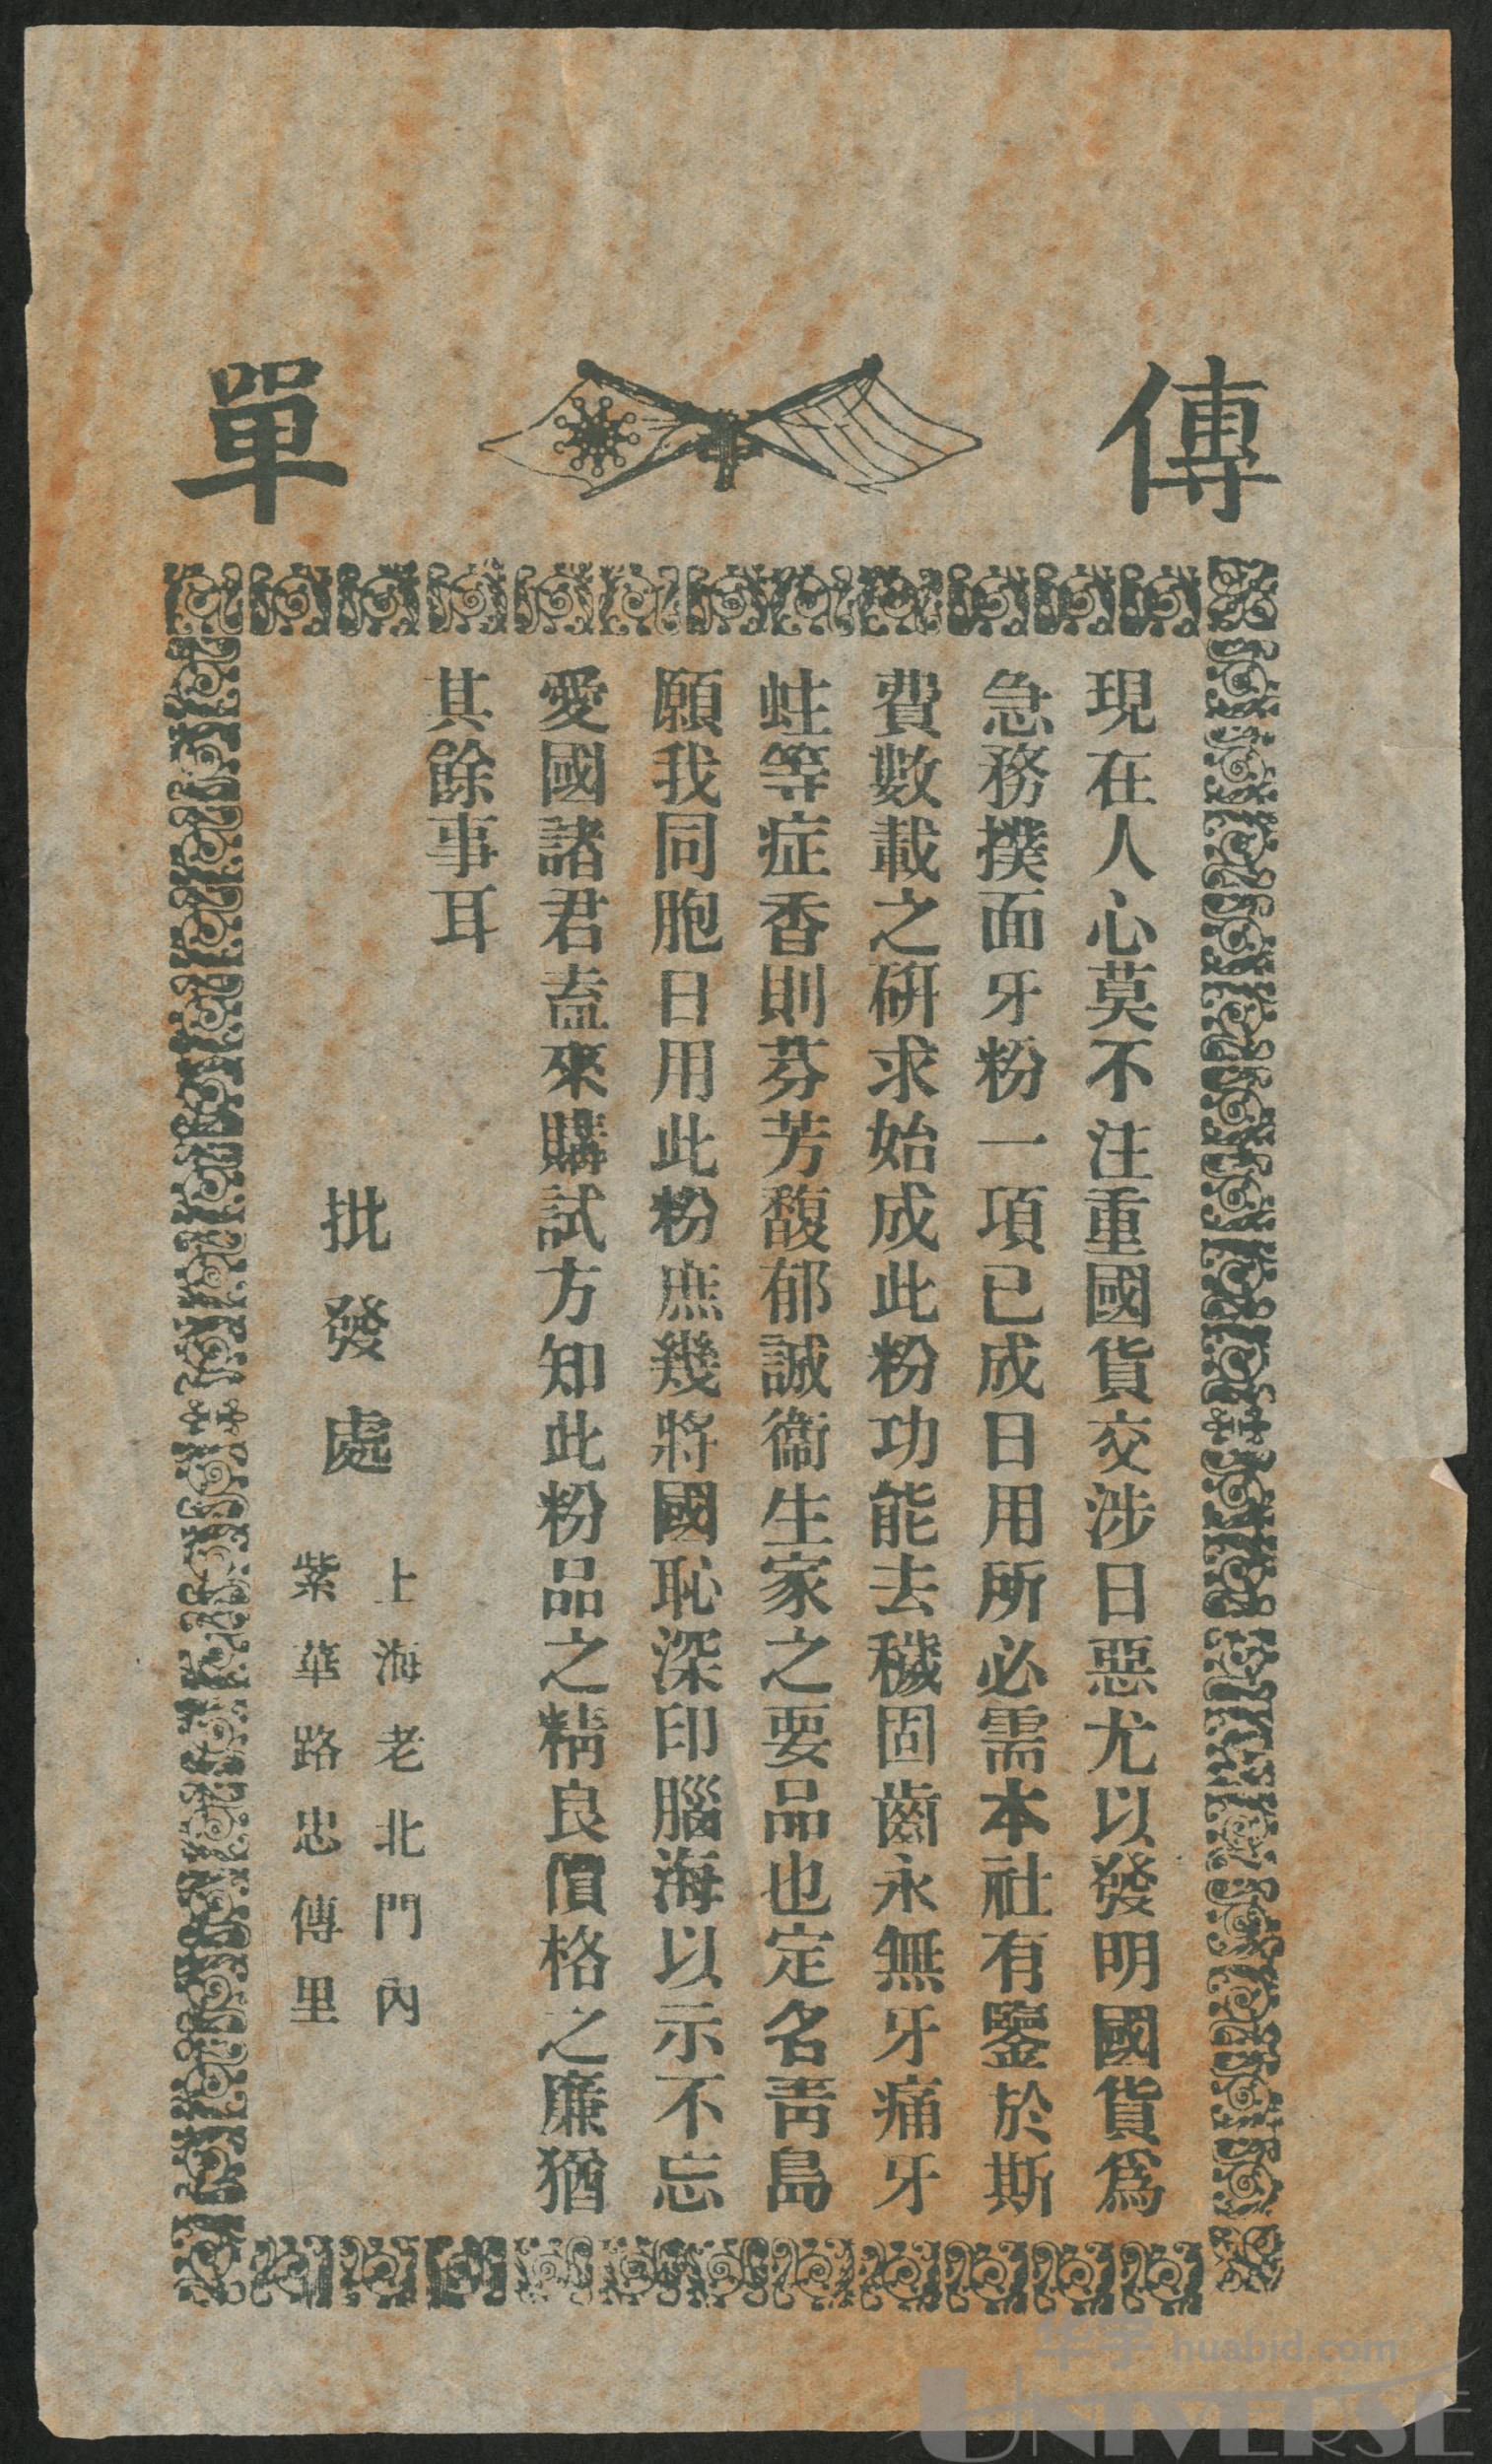 傳單
現在人心莫不注重國貨交涉日惡尤以發明國貨爲
急務撲面牙粉一項已成日用所必需本社有鑒於斯
費數載之研求始成此粉功能去穢固齒永無牙痛牙
蛀等症香則芬芳馥郁誠衞生家之要品也定名靑島
願我同胞日用此粉庶幾將國恥深印腦海以示不忘
愛國諸君盍來購試方知此粉品之精良價格之廉猶
其餘事耳
批發處
上海老北門內
紫華路忠傳里
华宇 huabid.com
UNIVERSE